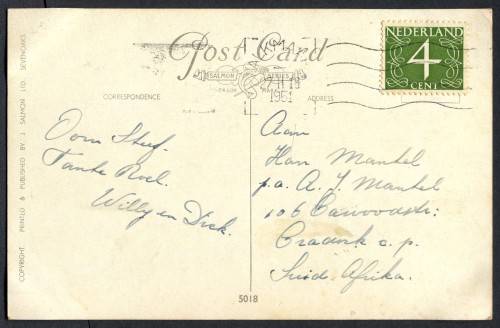 Post Card
SALMON SERIES
1961
NEDERLAND
4
CENT
CORRESPONDENCE
ADDRESS
COPYRIGHT PRINTED & PUBLISHED BY J. SALMON LTD. SEVENOAKS
Oom Stuf.
Tante Roel.
Willy en Dick.
Aan
Han Mantel
p.a. A. J. Mantel
106 Cawoodstr:
Cradock c.p.
Suid Afrika.
5018